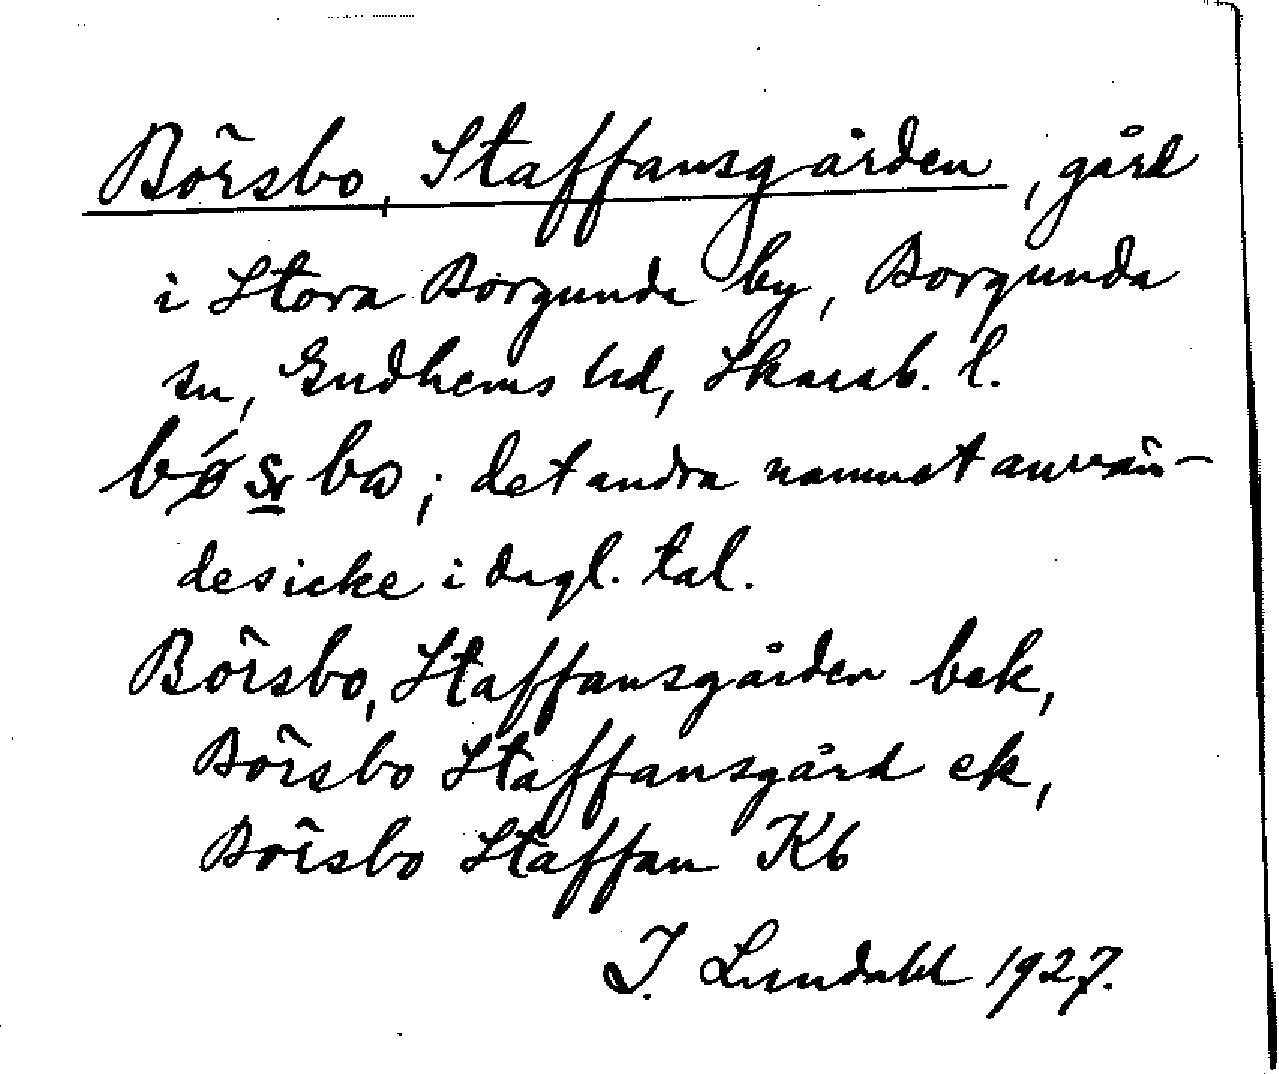 Börsbo, Staffansgården, gård
i Stora Borgunda by, Borgunda
sn, Gudhems hd, Skarab. l.
det andra namnet använ-
des icke i dagl. tal.
Börsbo, Staffansgården bek,
Börsbo Staffansgård ek,
Börsbo Staffan Kb
I. Lundahl 1927.